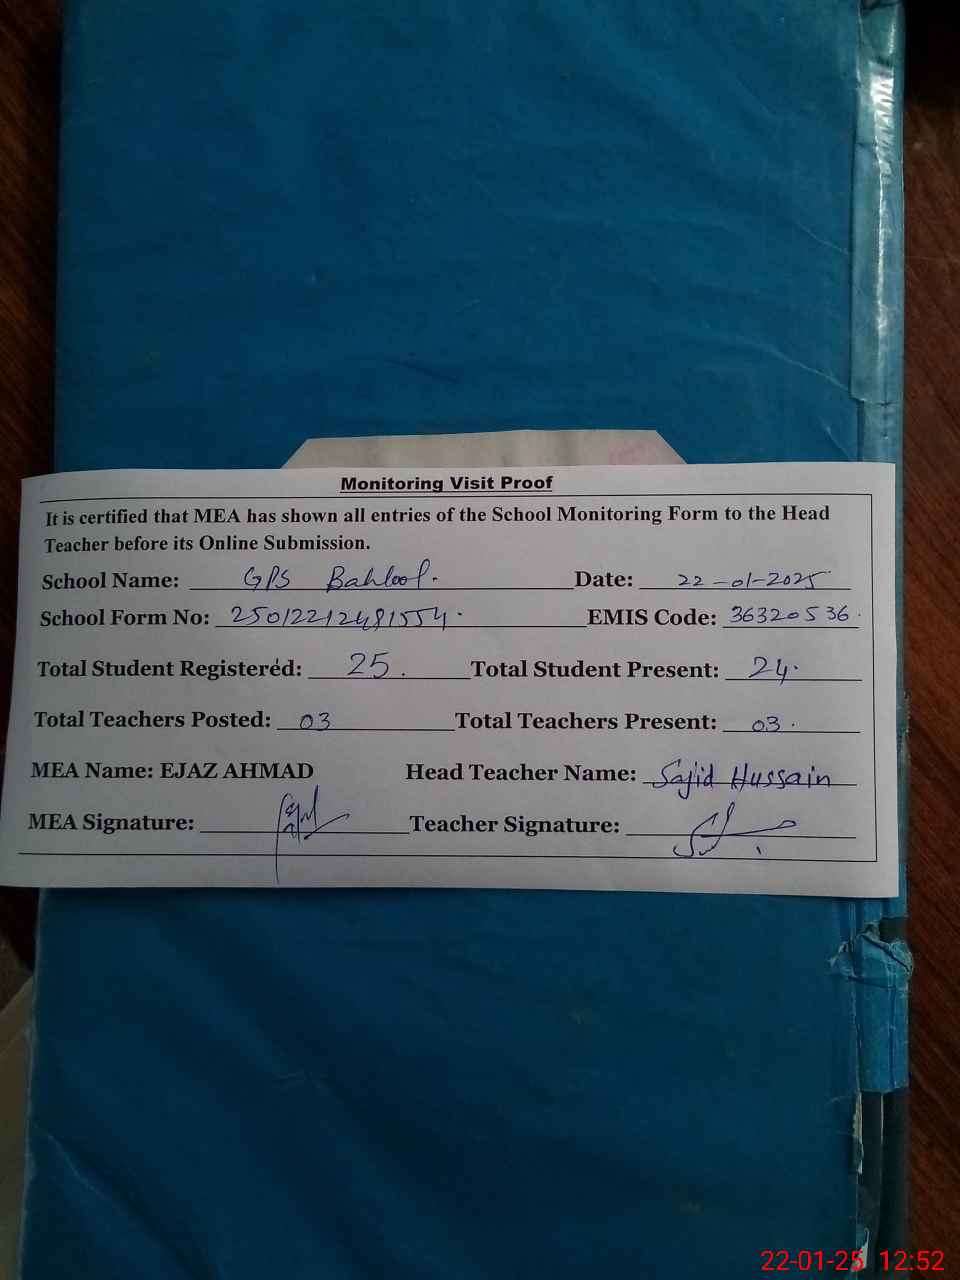 Monitoring Visit Proof
It is certified that MEA has shown all entries of the School Monitoring Form to the Head
Teacher before its Online Submission.
School Name: GPS Bahlool. Date: 22-01-2025
School Form No: 25012212481554. EMIS Code: 36320536.
Total Student Registered: 25. Total Student Present: 24.
Total Teachers Posted: 03 Total Teachers Present: 03.
MEA Name: EJAZ AHMAD Head Teacher Name: Sajid Hussain
MEA Signature: Teacher Signature:
22-01-25 12:52